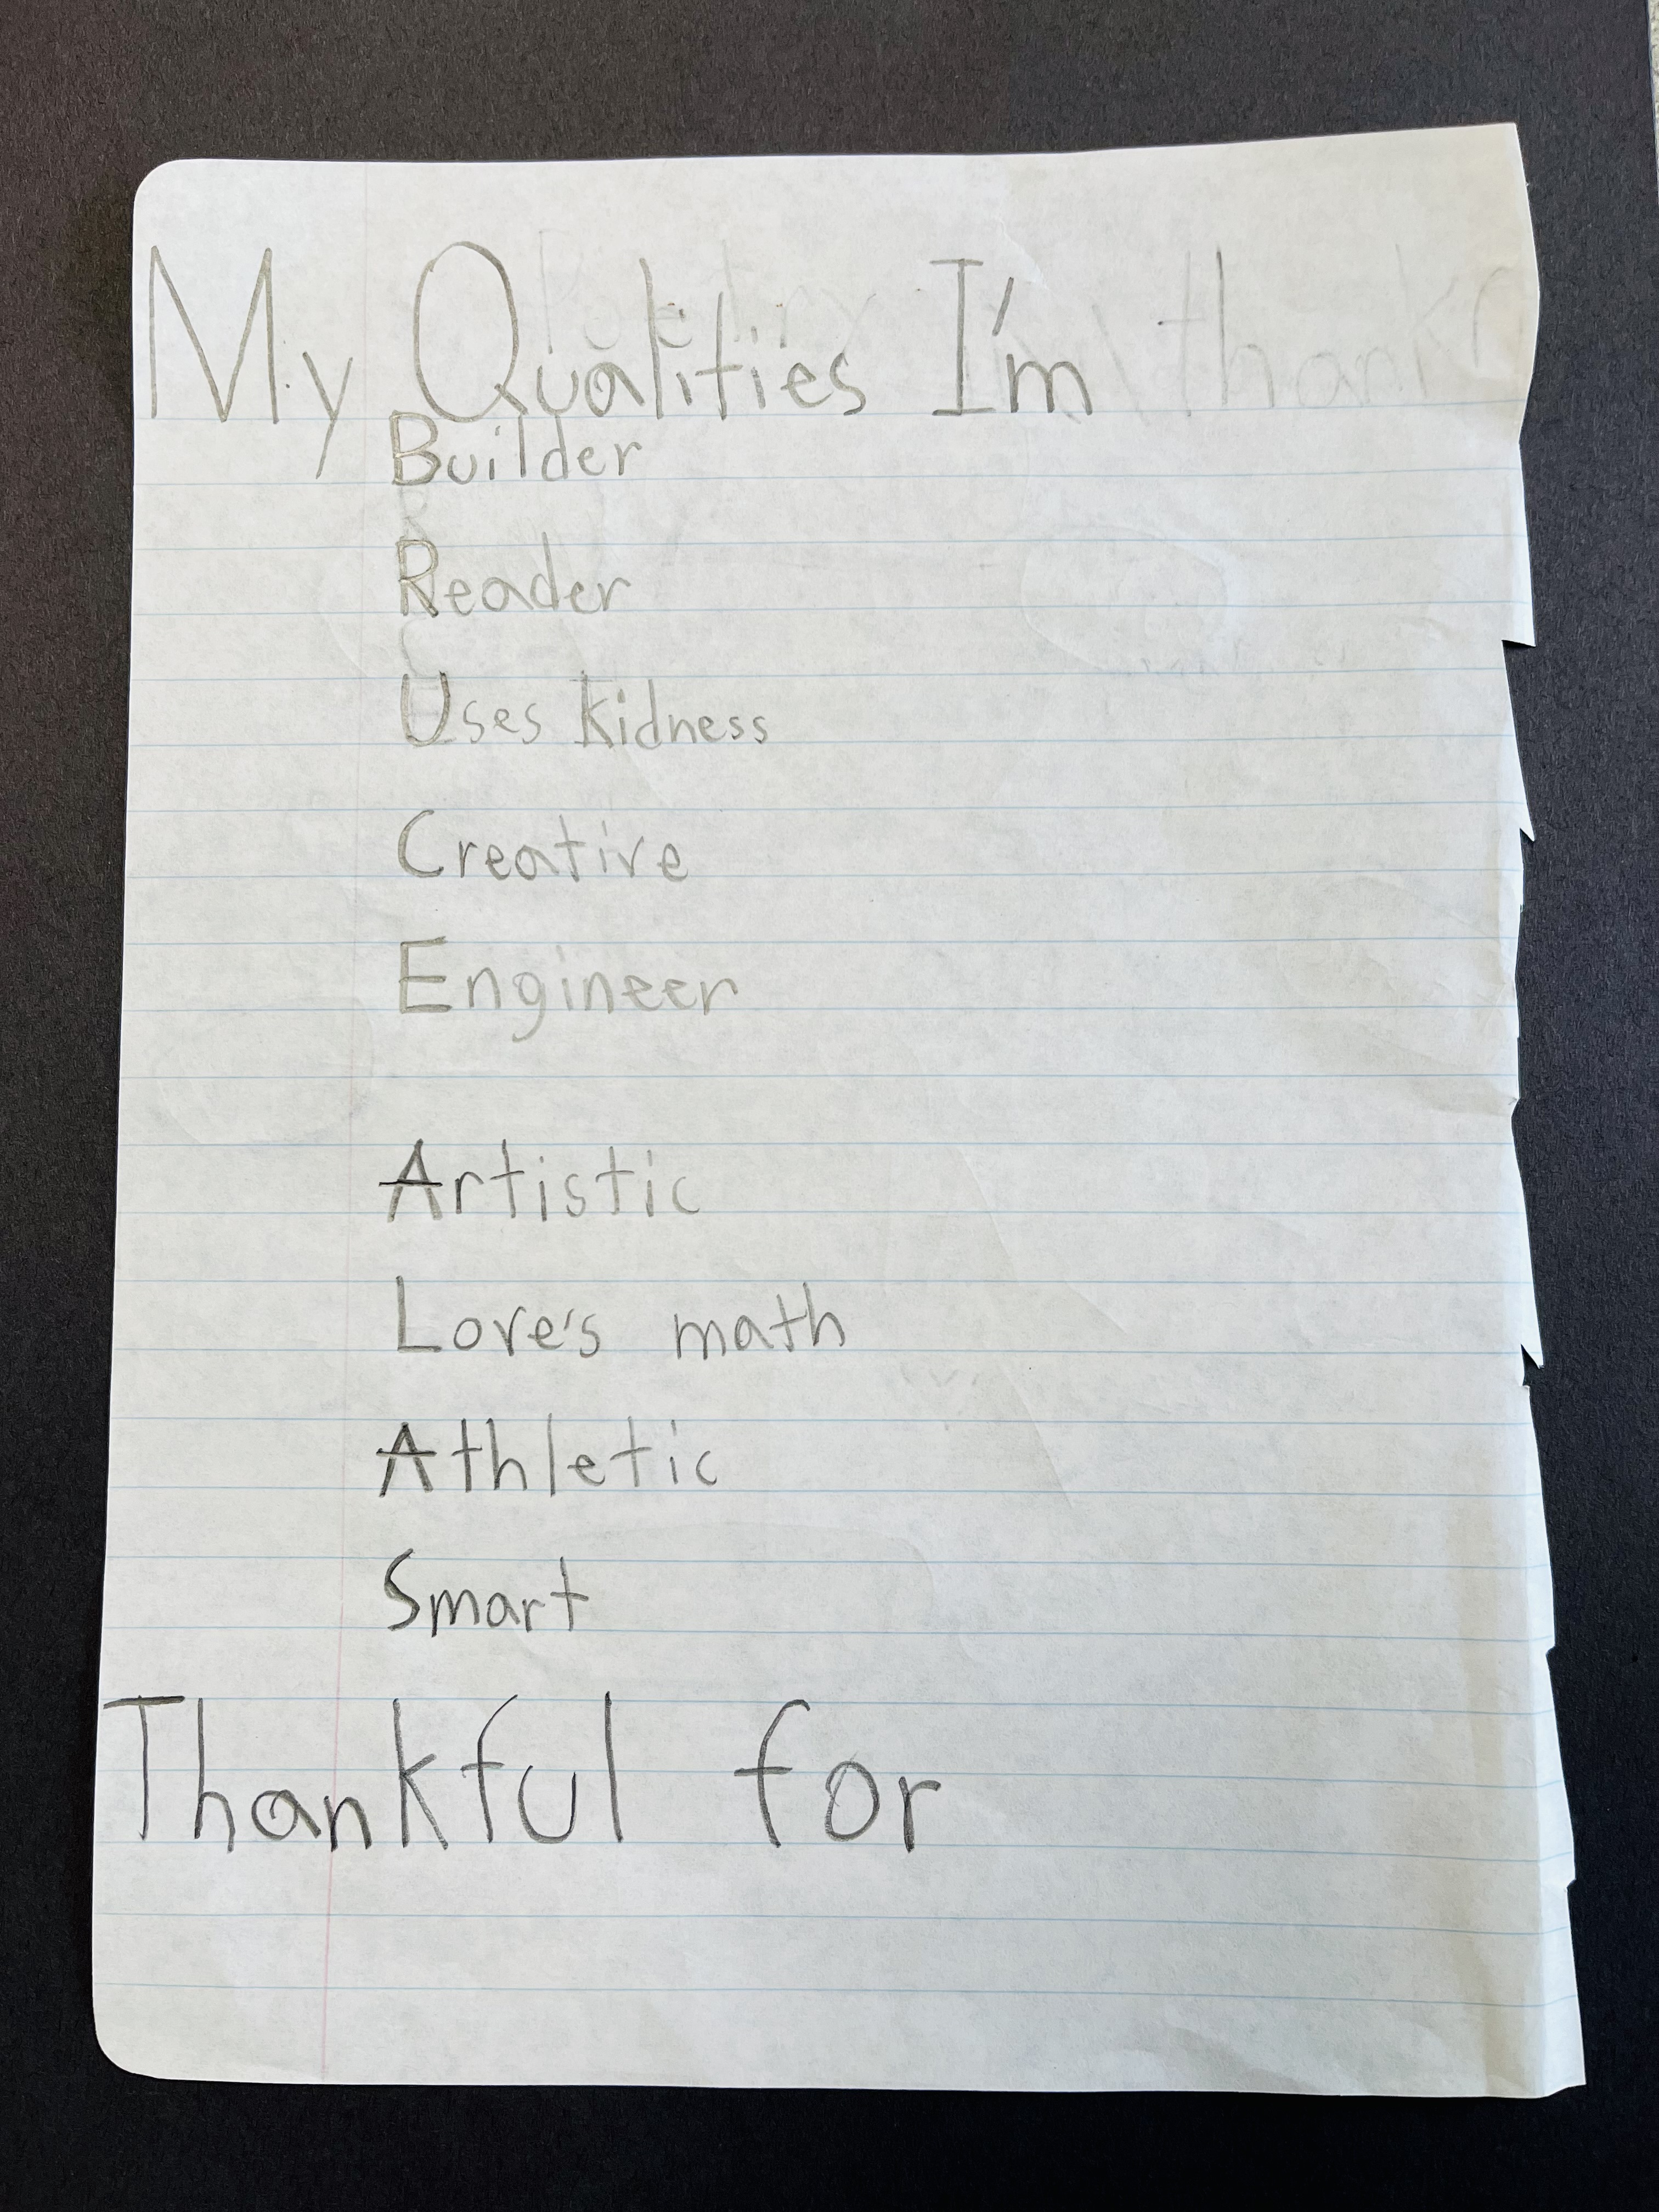 My Qualities I'm
Builder
Reader
Uses kidness
Creative
Engineer
Artistic
Love's math
Athletic
Smart
Thankful for